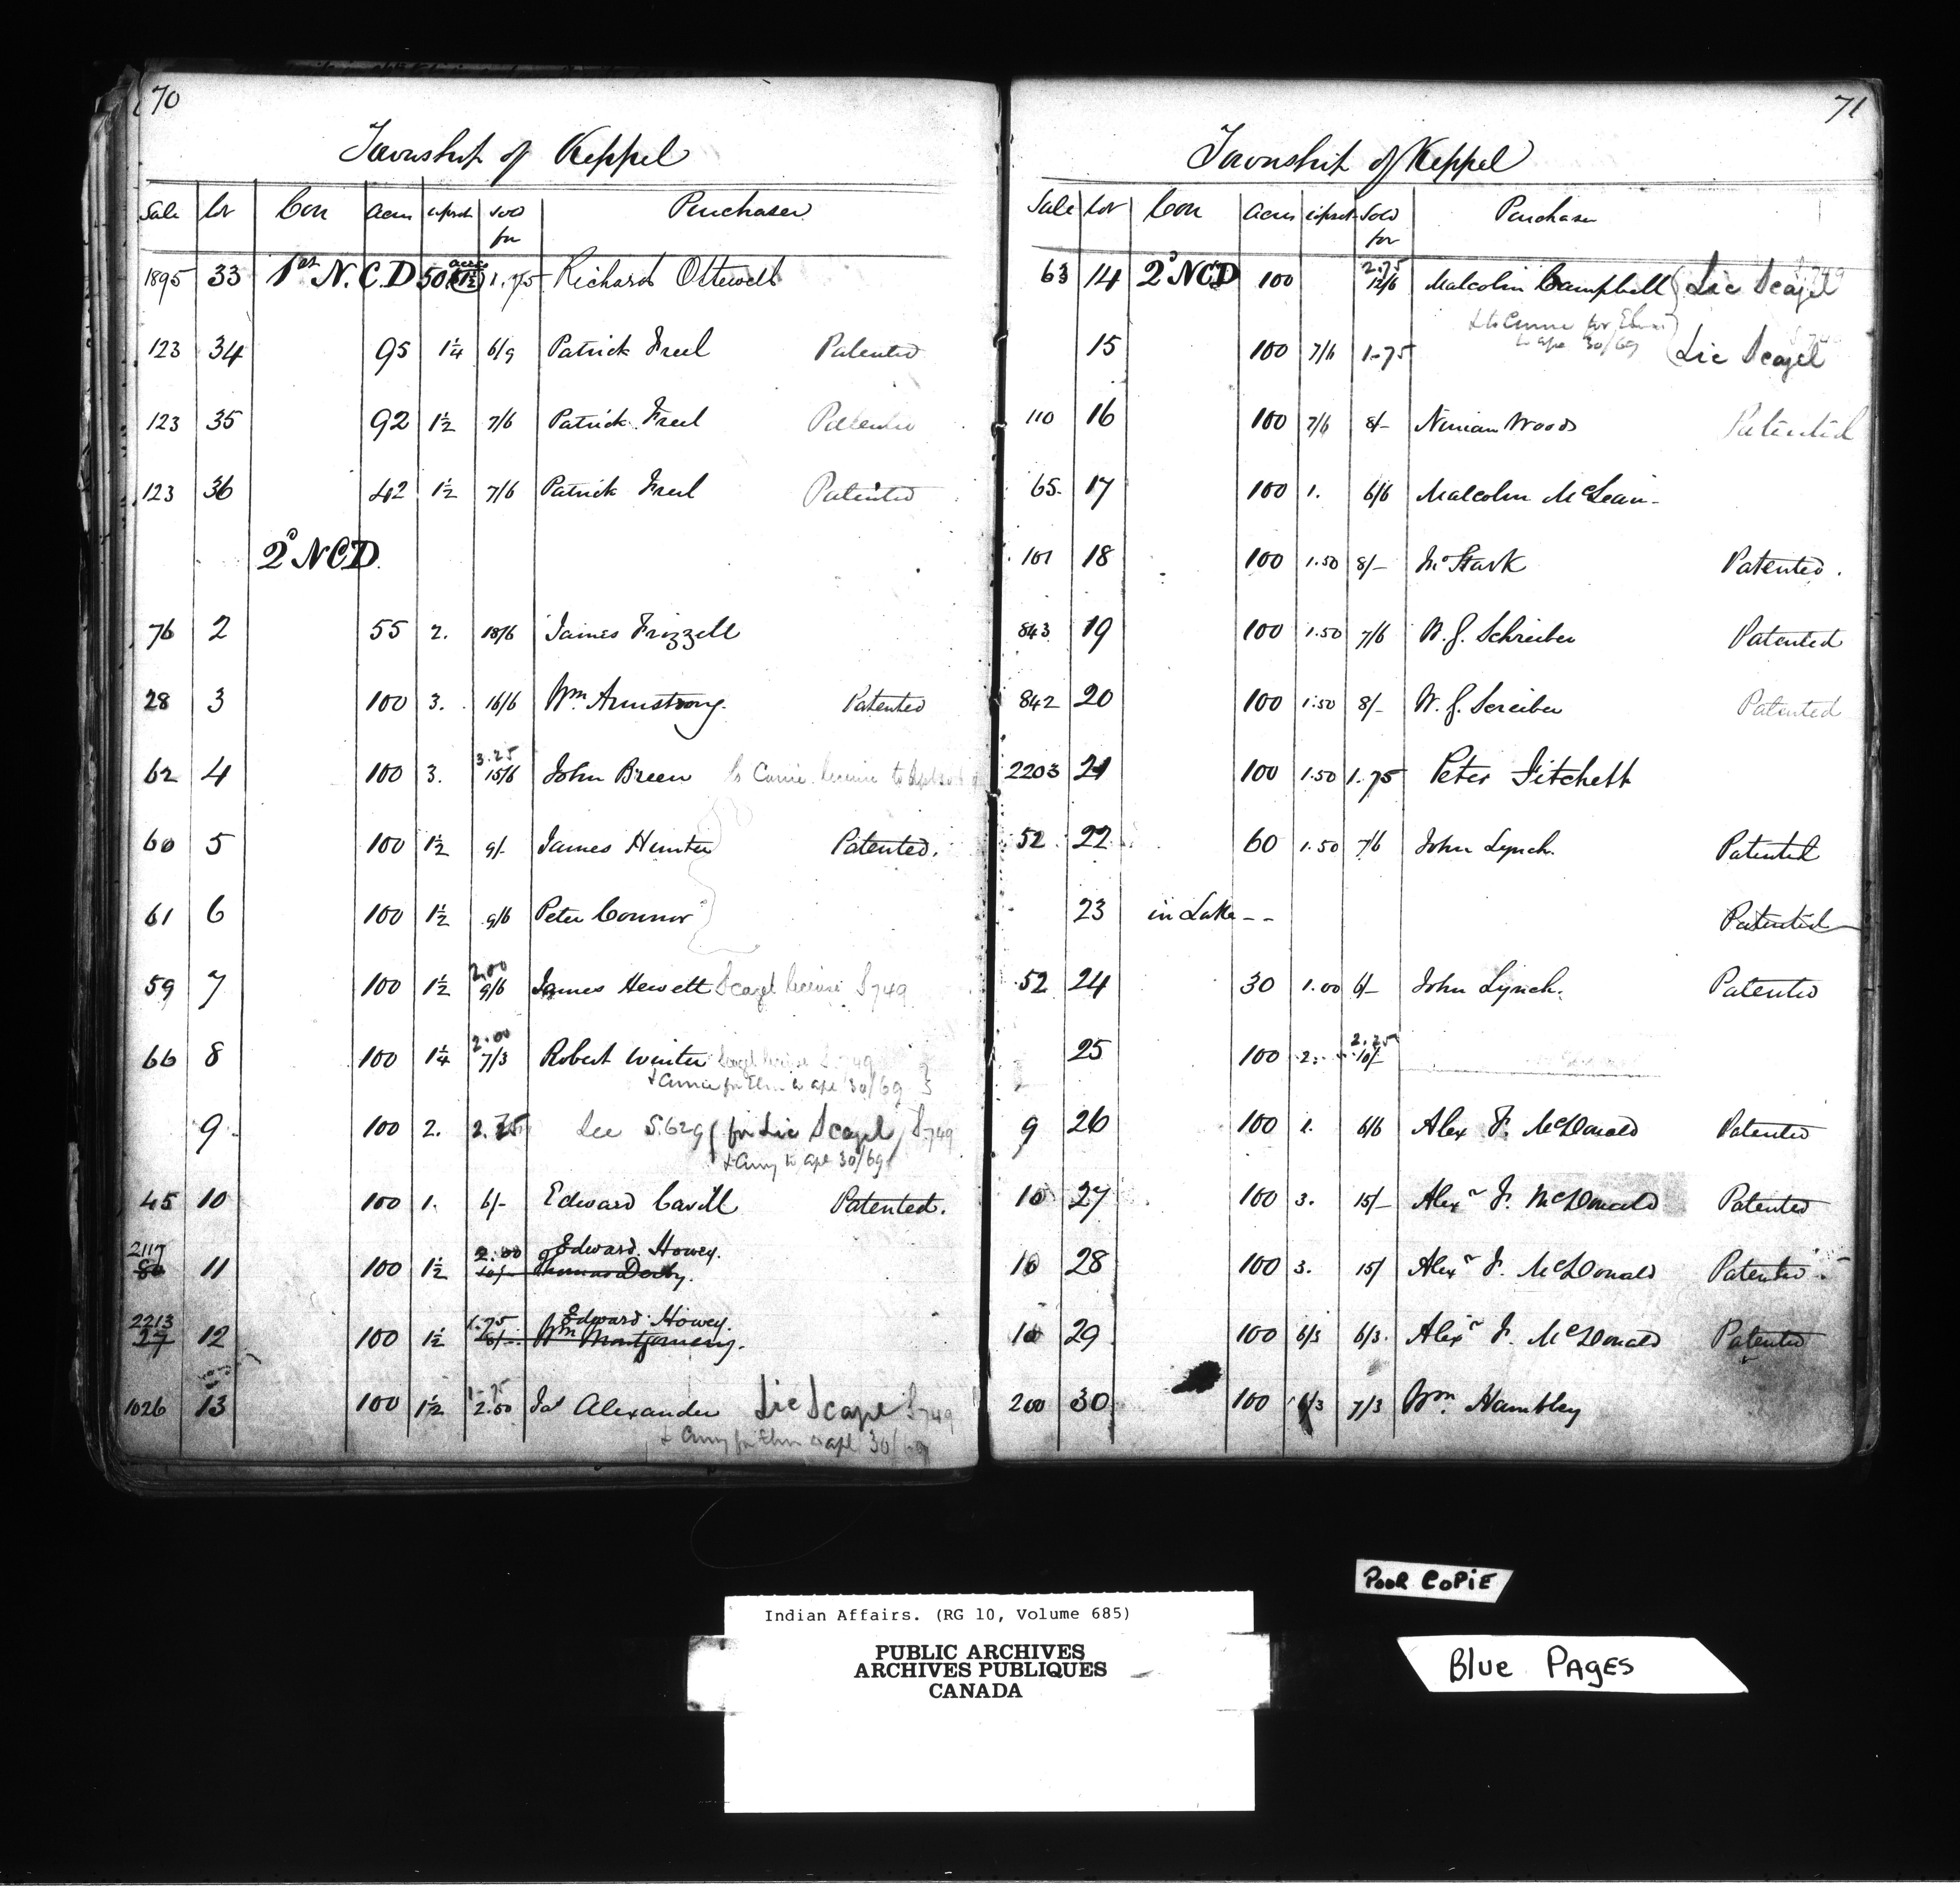 70
Township of Keppel
Sale Lot Con Acres upset Sold for Purchaser
1895 33 1st N.C.D 50 acres 1.75 Richard Ottewell
123 34 95 1¼ 6/9 Patrick Freel Patented
123 35 92 1½ 7/6 Patrick Freel Patented
123 36 42 1½ 7/6 Patrick Freel Patented
2d NCD.
76 2 55 2. 18/6 James Frizzell
28 3 100 3. 16/6 Wm Armstrong. Patented
62 4 100 3. 3.25 15/6 John Breen
60 5 100 1½ 9/- James Hunter Patented.
61 6 100 1½ 9/6 Peter Connor
59 7 100 1½ 2.00 9/6 James Hewett Scagel license S749
66 8 100 1¼ 2.00 7/3 Robert Winter
for Elm to ape 30/69
9 100 2. 2.75 See S.629 (for Lic Scagel) S.749
to ape 30/69
45 10 100 1. 6/- Edward Cavill Patented.
2117 80 11 100 1½ 2.00 10/- Edward Howey.
Thomas Derby.
2213 27 12 100 1½ 1.75 8/- Edward Howey.
Wm Montgomery.
1026 13 100 1½ 1.75 2.00 Jas Alexander Lic Scagel S749
for Elm to ape 30/69
71
Township of Keppel
Sale Lot Con Acres upset Sold for Purchaser
63 14 2d NCD 100 2.75 12/6 Malcolm Campbell (Lic Scagel S.749
for Elm
to ape 30/69
15 100 7/6 1.75 (Lic Scagel
110 16 100 7/6 8/- Ninian Woods Patented
65 17 100 1. 6/6 Malcolm McLean
101 18 100 1.50 8/- Jno Stark Patented.
843 19 100 1.50 7/6 W. J. Schreiber Patented
842 20 100 1.50 8/- W. J. Screiber Patented
2203 21 100 1.50 1.75 Peter Fitchett
52 22 60 1.50 7/6 John Lynch. Patented
23 in Lake -- Patented
52 24 30 1.00 6/- John Lynch. Patented
25 100 2. 2.25 10/-
9 26 100 1. 6/6 Alex F. McDonald Patented
10 27 100 3. 15/- Alexr F. McDonald Patented
10 28 100 3. 15/ Alexr F. McDonald Patented
10 29 100 6/3 6/3. Alexr F. McDonald Patented
200 30 100 6/3 7/3 Wm Hambley
POOR COPIE
Indian Affairs. (RG 10, Volume 685)
PUBLIC ARCHIVES
ARCHIVES PUBLIQUES
CANADA
Blue PAgES